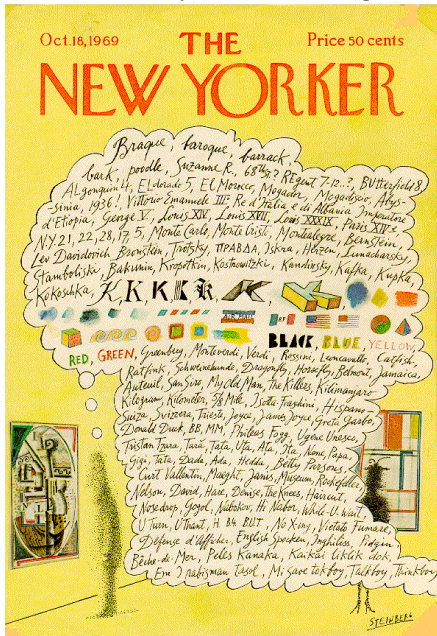 Oct. 18, 1969
THE
Price 50 cents
NEW YORKER
Braque, baroque, barrack,
bark, poodle, Suzanne R., 68th? REgent 7-12..?, BUtterfield 8,
ALgonquin 4, ELdorado 5, El Morocco, Mogador, Mogadiscio, Abys-
sinia, 1936!, Vittorio Emanuele III: Re d'Italia e di Albania Imperatore
d'Etiopia, George V, Louis XIV, Louis XVII, Louis XXXIX, Paris XIVe,
N.Y. 21, 22, 28, 17, 5, Monte Carlo, Monte Cristo, Montealegre, Bernstein
Lev Davidovich Bronstein, Trotsky, ПРАВДА, Iskra, Herzen, Lunacharsky,
Stamboliski, Bakunin, Kropotkin, Kostrowitzki, Kandinsky, Kafka, Kupka,
Kokoschka, K, K, K, K, K, K
AIR MAIL
RF
BLACK, BLUE, YELLOW,
RED, GREEN, Greenberg, Monteverdi, Verdi, Rossini, Leoncavallo, Catfish,
Ratfink, Schweinehunde, Dragonfly, Horsefly, Belmont, Jamaica,
Auteuil, San Siro, My Old Man, The Killers, Kilimanjaro
Kilogram, Kilometer, 5/8 Mile, Isotta-Fraschini, Hispano
Suiza, Svizzera, Trieste, Joyce, James Joyce, Greta Garbo,
Donald Duck, BB, MM, Phileas Fogg, Ugene Unesco,
Tristan Tzara, Tara, Tata, Uta, Ata, Ita, Nona, Papa,
Gigi, Tati, Dada, Ada, Hedda, Betty Parsons,
Curt Vallentin, Maeght, Janis, Museum, Rockefeller,
Nelson, David, Hare, Denise, The Knees, Haircut,
Nosedrop, Gogol, Nabokov, Hi Nabor, While-U-Wait
U Turn, U Thant, H. B4 BUT, No Xing, Vietato Fumare,
Défense d'Afficher, English Spoken, Inghliss, Pidgin
Bêche-de-Mer, Peles Kanaka, Kaikai liklik dok,
Em I rabisman tasol, Mi save tokboy, Talkboy, Thinkboy
STEINBERG